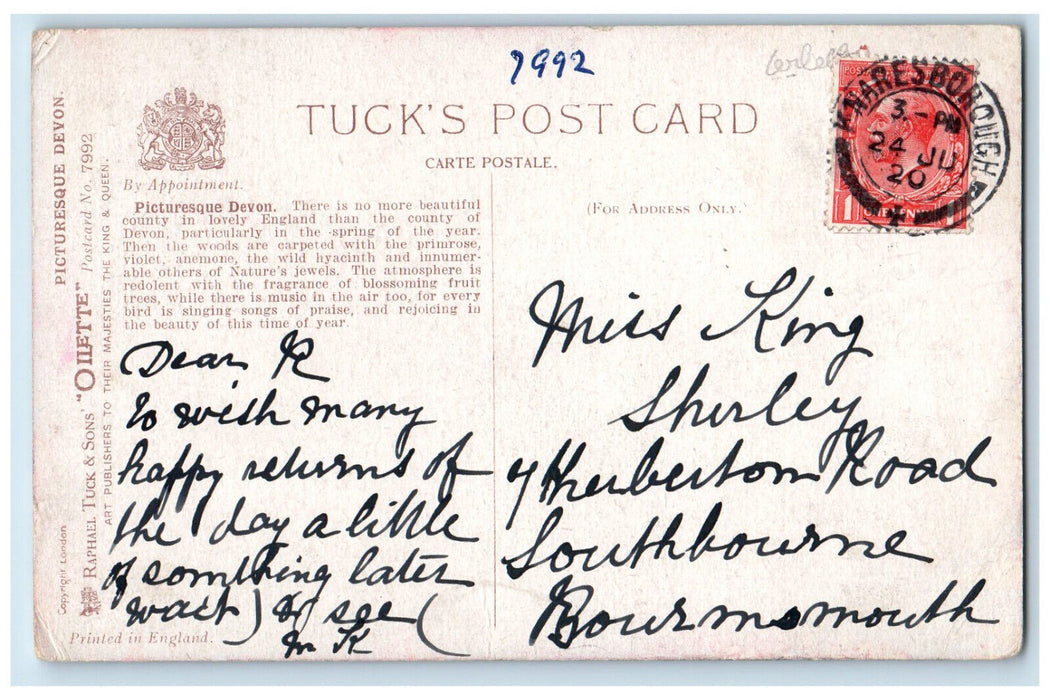 7992
TUCK'S POST CARD
CARTE POSTALE.
By Appointment.
(FOR ADDRESS ONLY.)
PICTURESQUE DEVON.
RAPHAEL TUCK & SONS' "OILETTE" Postcard No. 7992
ART PUBLISHERS TO THEIR MAJESTIES THE KING & QUEEN.
Copyright London
Picturesque Devon. There is no more beautiful
county in lovely England than the county of
Devon, particularly in the spring of the year.
Then the woods are carpeted with the primrose,
violet, anemone, the wild hyacinth and innumer-
able others of Nature's jewels. The atmosphere is
redolent with the fragrance of blossoming fruit
trees, while there is music in the air too, for every
bird is singing songs of praise, and rejoicing in
the beauty of this time of year.
Dear K
to wish many
happy returns of
the day a little
of something later
wait) & see (
M K
Printed in England.
KNARESBOROUGH
3.-PM
24 JU
20
Miss King
Shirley
7 Herberton Road
Southbourne
Bournemouth